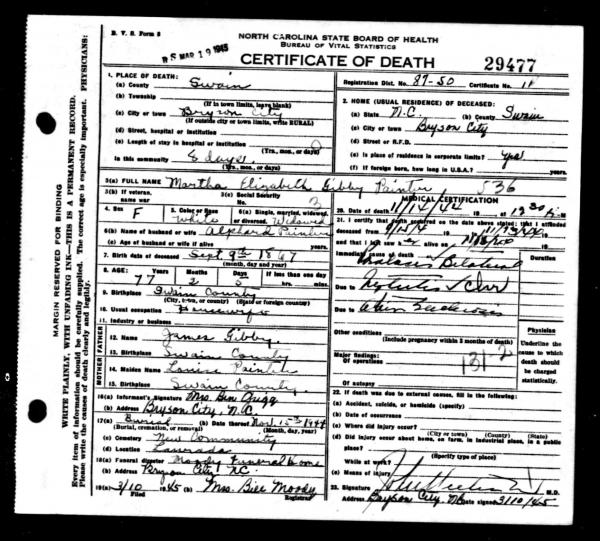 B. V. S. Form 8
NORTH CAROLINA STATE BOARD OF HEALTH
BUREAU OF VITAL STATISTICS
MAR 19 1945
CERTIFICATE OF DEATH
29477
Registration Dist. No. 87-50 Certificate No. 11
1. PLACE OF DEATH:
(a) County Swain
(b) Township
(If in town limits, leave blank)
(c) City or town Bryson City
(If outside city or town limits, write RURAL)
(d) Street, hospital or institution
(e) Length of stay in hospital or institution
(Yrs., mos., or days)
In this community 6 days.
(Yrs., mos., or days)
2. HOME (USUAL RESIDENCE) OF DECEASED:
(a) State N.C. (b) County Swain
(c) City or town Bryson City
(d) Street or R.F.D.
(e) Is place of residence in corporate limits? yes
(f) If foreign born, how long in U.S.A.?
3(a) FULL NAME Martha Elizabeth Gibby Painter, 536
3(b) If veteran, name war
3(c) Social Security No.
4. Sex F
5. Color or Race White
6(a) Single, married, widowed, or divorced. Widowed
6(b) Name of husband or wife Painter
6(c) Age of husband or wife if alive
7. Birth date of deceased Sept. 9th 1867
(month, day and year)
8. AGE: Years Months Days If less than one day
77 2 5 hrs. min.
9. Birthplace Swain County
(City, town, or county) (State or foreign country)
10. Usual occupation Housewife
11. Industry or business
FATHER
12. Name James Gibby
13. Birthplace Swain County
MOTHER
14. Maiden Name Louise Painter
15. Birthplace Swain County
16(a) Informant's Signature Mrs. Ben Grigg
(b) Address Bryson City, N.C.
17(a) Burial (b) Date thereof Nov. 15th 1944
(Burial, cremation, or removal) (Month, day, year)
(c) Cemetery New Community
(d) Location Lauada
18(a) Funeral director Moody Funeral Home
(b) Address Bryson City N.C.
19(a) 3/10 1945 (b) Mrs. Bill Moody
Filed Registrar
MEDICAL CERTIFICATION
20. Date of death 11/14/44 at 12 30 M.
21. I certify that death occurred on the date above stated; that I attended
deceased from
and that I last saw alive on
Immediate cause of death Bilateral
Duration
Due to
Due to
Other conditions
(Include pregnancy within 3 months of death)
Major findings:
Of operations
131-2
Of autopsy
Physician
Underline the cause to which death should be charged statistically.
22. If death was due to external causes, fill in the following:
(a) Accident, suicide, or homicide (specify)
(b) Date of occurrence
(c) Where did injury occur?
(City or town) (County) (State)
(d) Did injury occur about home, on farm, in industrial place, in a public place?
(Specify type of place)
While at work?
(e) Means of injury
23. Signature M.D.
Address Bryson City, NC Date signed 3/10/45
MARGIN RESERVED FOR BINDING
WRITE PLAINLY, WITH UNFADING INK—THIS IS A PERMANENT RECORD.
Every item of information should be carefully supplied. The correct age is especially important. PHYSICIANS:
Please write the causes of death clearly and legibly.